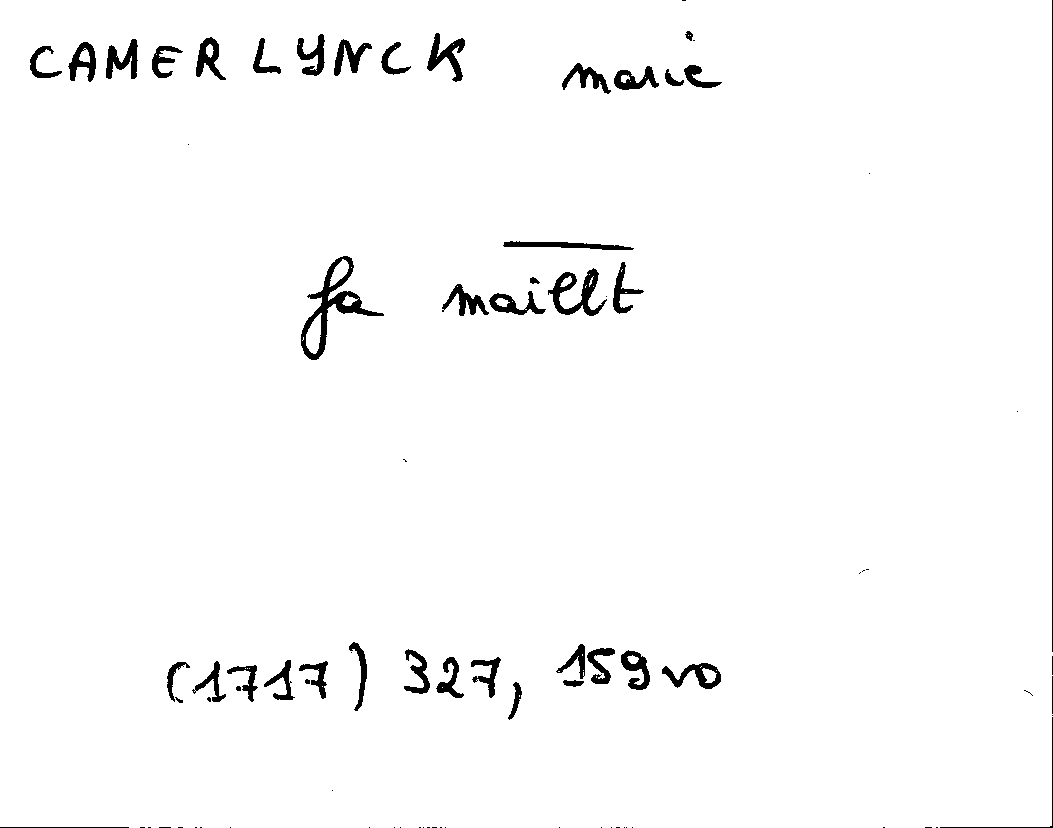 CAMERLYNCK marie
fa maillt
(1717) 327, 159vo